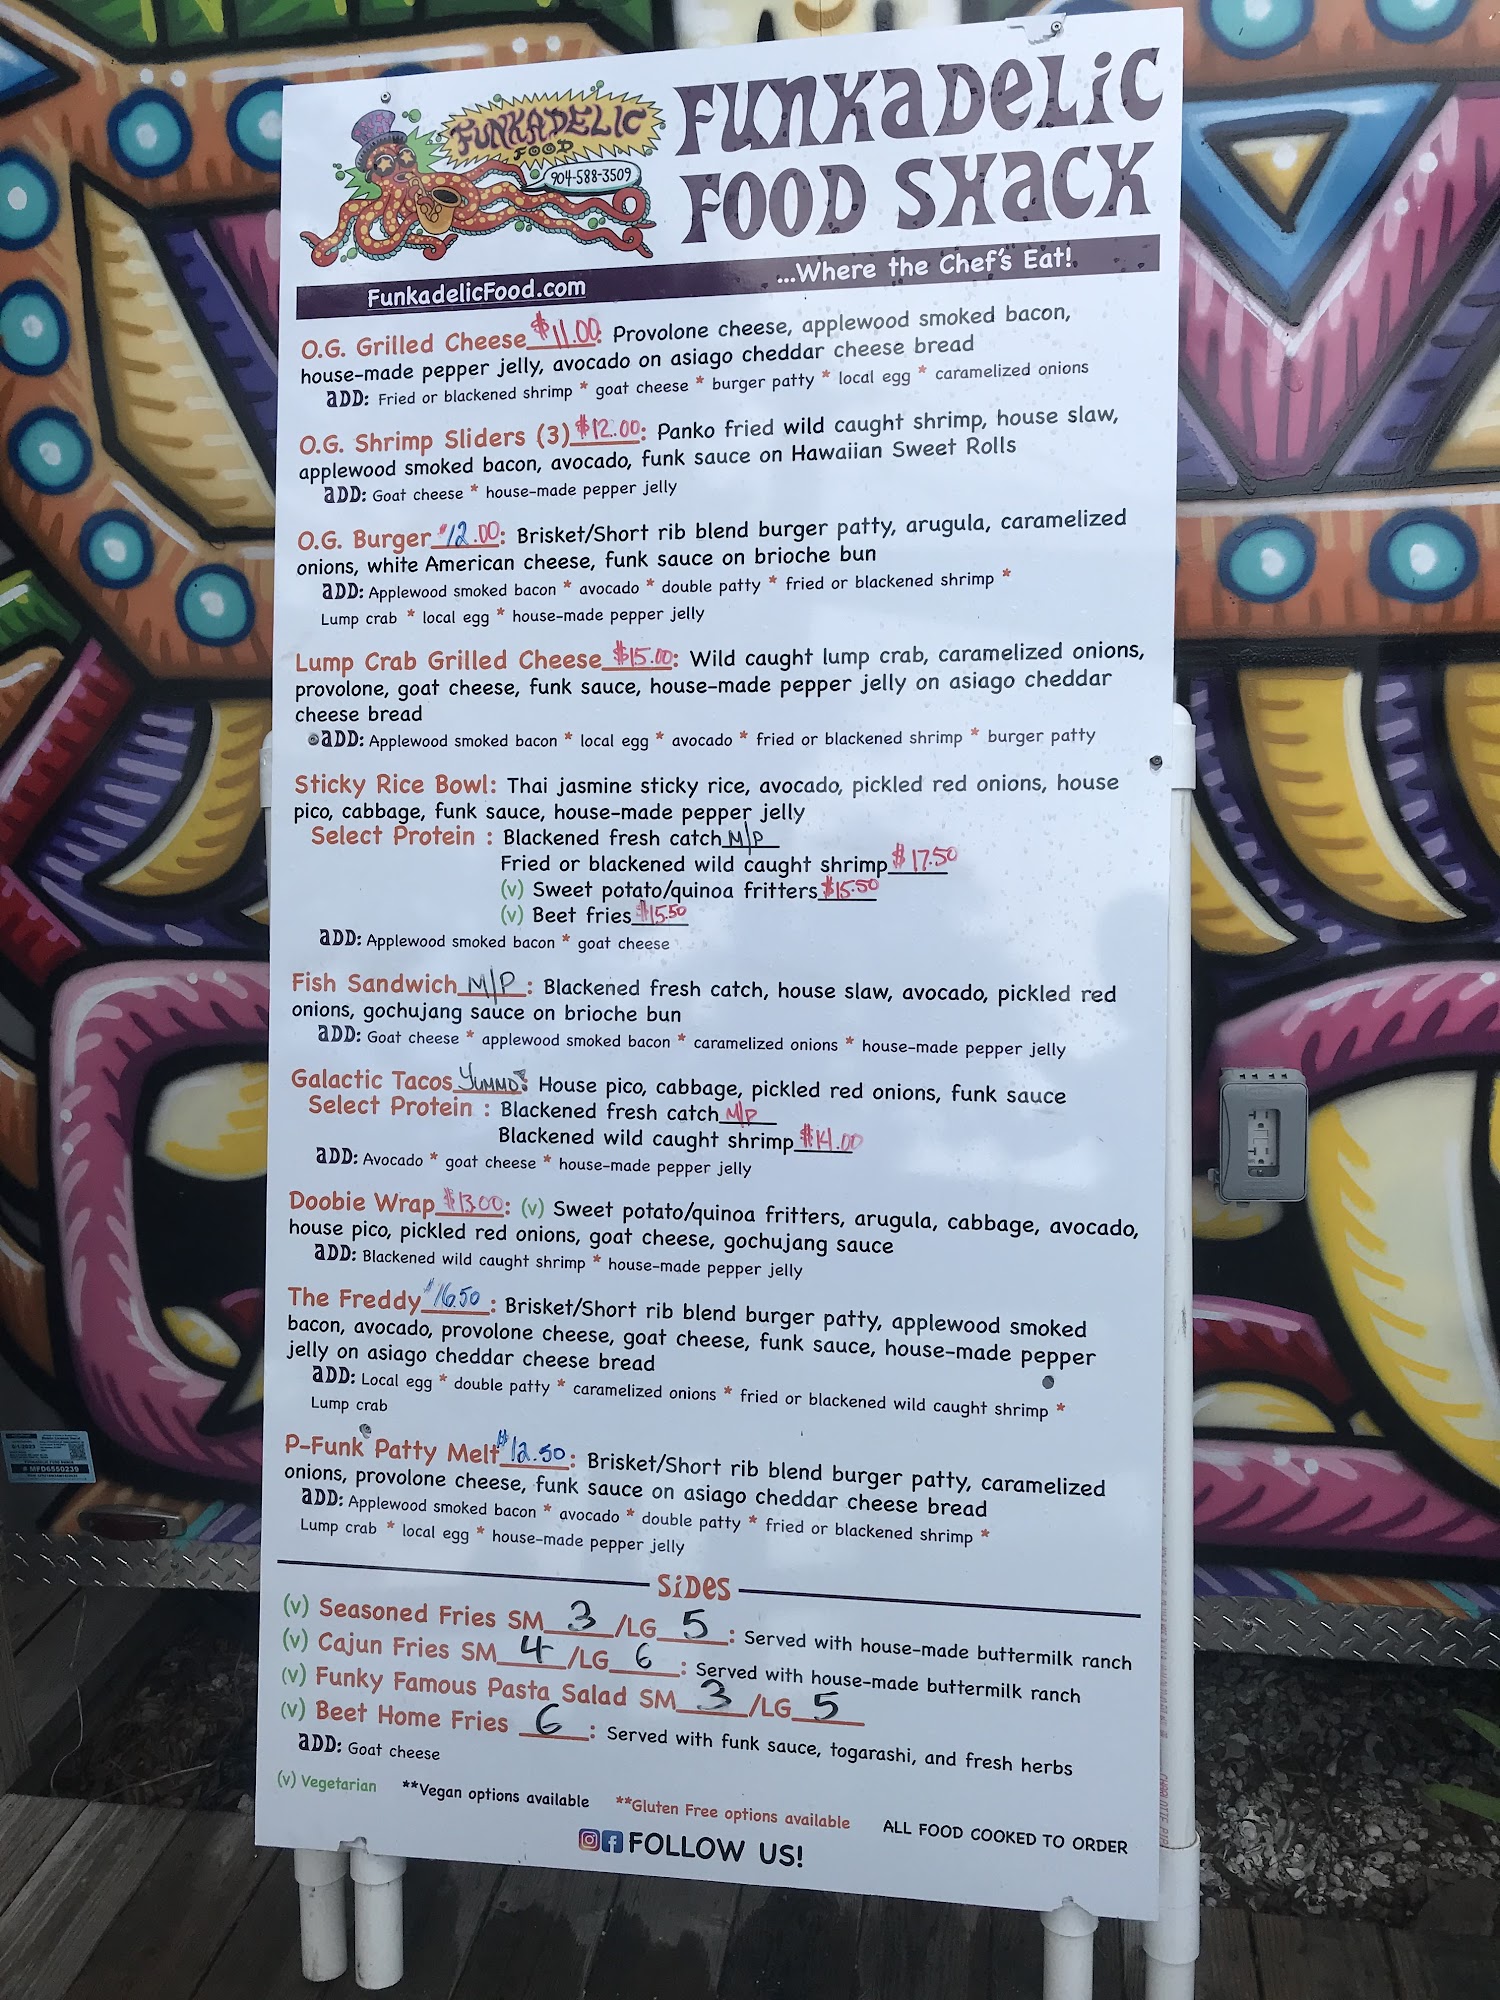 FUNKADELIC
FOOD
904-588-3509
FUNKADELIC
FOOD SHACK
FunkadelicFood.com ...Where the Chef's Eat!
O.G. Grilled Cheese $11.00: Provolone cheese, applewood smoked bacon,
house-made pepper jelly, avocado on asiago cheddar cheese bread
ADD: Fried or blackened shrimp * goat cheese * burger patty * local egg * caramelized onions
O.G. Shrimp Sliders (3) $12.00: Panko fried wild caught shrimp, house slaw,
applewood smoked bacon, avocado, funk sauce on Hawaiian Sweet Rolls
ADD: Goat cheese * house-made pepper jelly
O.G. Burger $12.00: Brisket/Short rib blend burger patty, arugula, caramelized
onions, white American cheese, funk sauce on brioche bun
ADD: Applewood smoked bacon * avocado * double patty * fried or blackened shrimp *
Lump crab * local egg * house-made pepper jelly
Lump Crab Grilled Cheese $15.00: Wild caught lump crab, caramelized onions,
provolone, goat cheese, funk sauce, house-made pepper jelly on asiago cheddar
cheese bread
ADD: Applewood smoked bacon * local egg * avocado * fried or blackened shrimp * burger patty
Sticky Rice Bowl: Thai jasmine sticky rice, avocado, pickled red onions, house
pico, cabbage, funk sauce, house-made pepper jelly
Select Protein : Blackened fresh catch M/P
Fried or blackened wild caught shrimp $17.50
(v) Sweet potato/quinoa fritters $15.50
(v) Beet fries $15.50
ADD: Applewood smoked bacon * goat cheese
Fish Sandwich M/P: Blackened fresh catch, house slaw, avocado, pickled red
onions, gochujang sauce on brioche bun
ADD: Goat cheese * applewood smoked bacon * caramelized onions * house-made pepper jelly
Galactic Tacos YUMMO: House pico, cabbage, pickled red onions, funk sauce
Select Protein : Blackened fresh catch M/P
Blackened wild caught shrimp $14.00
ADD: Avocado * goat cheese * house-made pepper jelly
Doobie Wrap $13.00: (v) Sweet potato/quinoa fritters, arugula, cabbage, avocado,
house pico, pickled red onions, goat cheese, gochujang sauce
ADD: Blackened wild caught shrimp * house-made pepper jelly
The Freddy $16.50: Brisket/Short rib blend burger patty, applewood smoked
bacon, avocado, provolone cheese, goat cheese, funk sauce, house-made pepper
jelly on asiago cheddar cheese bread
ADD: Local egg * double patty * caramelized onions * fried or blackened wild caught shrimp *
Lump crab
P-Funk Patty Melt $12.50: Brisket/Short rib blend burger patty, caramelized
onions, provolone cheese, funk sauce on asiago cheddar cheese bread
ADD: Applewood smoked bacon * avocado * double patty * fried or blackened shrimp *
Lump crab * local egg * house-made pepper jelly
SIDES
(v) Seasoned Fries SM 3 /LG 5 : Served with house-made buttermilk ranch
(v) Cajun Fries SM 4 /LG 6 : Served with house-made buttermilk ranch
(v) Funky Famous Pasta Salad SM 3 /LG 5
(v) Beet Home Fries 6 : Served with funk sauce, togarashi, and fresh herbs
ADD: Goat cheese
(v) Vegetarian **Vegan options available **Gluten Free options available ALL FOOD COOKED TO ORDER
FOLLOW US!